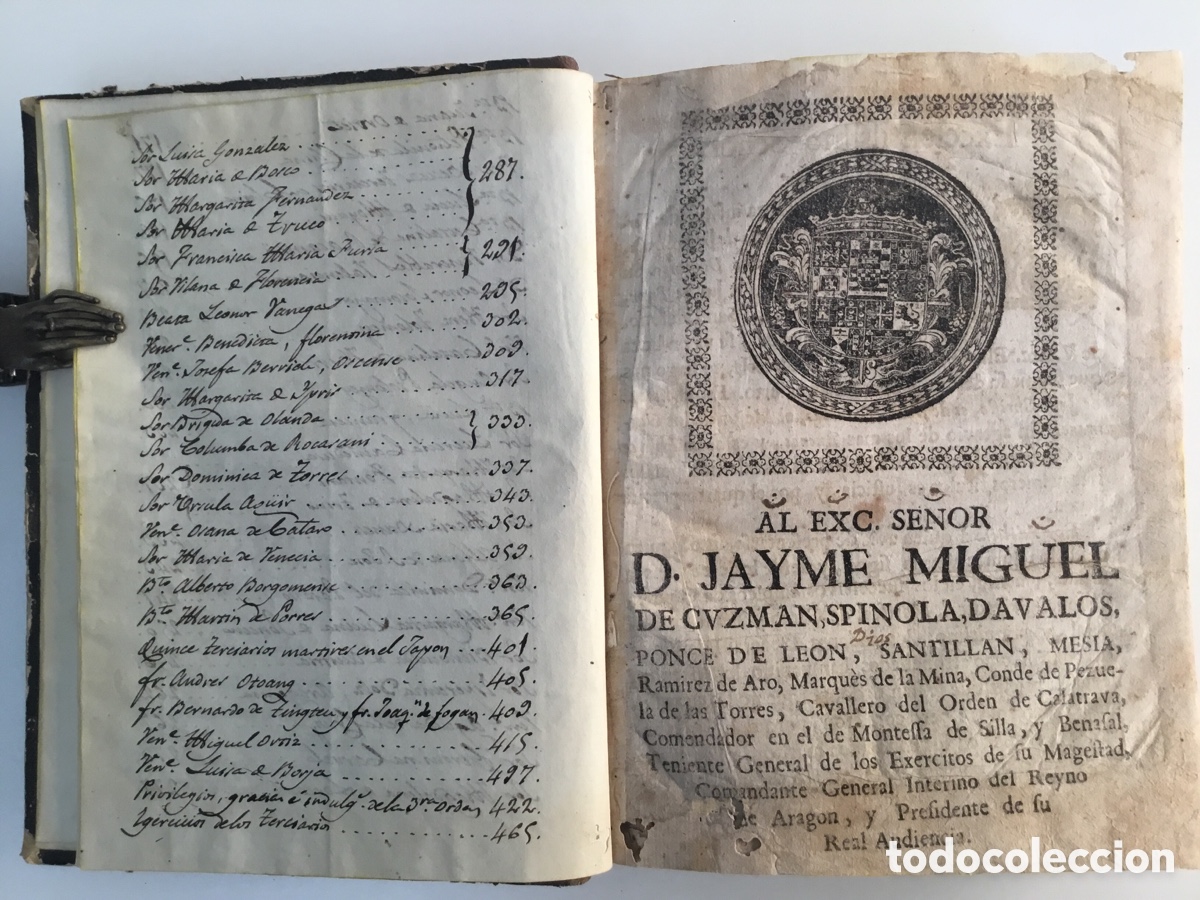 Sor Luisa Gonzalez
Sor Maria de Bosco
287.
Sor Margarita Fernandez
Sor Maria de Truco
Sor Francisca Maria Furia
291.
Sor Vilana de Florencia
Beata Leonor Vanegas
295.
Vener.ᵉ Benedicta, florentina
302.
Ven.ᵉ Josefa Berriol, Oscense
309.
Sor Margarita de Ipris
317
Sor Brigida de Olanda
Sor Columba de Rocarani
333.
Sor Dominica de Torres
337.
Sor Ursula Agüir
343.
Ven.ᵉ Osana de Cataro
353.
Sor Maria de Venecia
359.
B.ᵗᵒ Alberto Borgomense
363.
B.ᵗᵒ Martin de Porres
365.
Quince terciarios martires en el Japon
401
fr. Andres Otoang
405.
fr. Bernardo de Tingteu y fr. Joaq.ⁿ de fogan
409.
Ven.ᵉ Miguel Orriz
415.
Ven.ᵉ Luisa de Borja
497.
Privilegios, gracias é indulg.ˢ de la 3.ʳᵃ Orden
422.
Egercicios de los terciarios
465.
AL EXC. SEÑOR
D. JAYME MIGUEL
DE CVZMAN, SPINOLA, DAVALOS,
Dios
PONCE DE LEON, SANTILLAN, MESIA,
Ramirez de Aro, Marquès de la Mina, Conde de Pezue-
la de las Torres, Cavallero del Orden de Calatrava,
Comendador en el de Montessa de Silla, y Benasal,
Teniente General de los Exercitos de su Magestad,
Comandante General Interino del Reyno
de Aragon, y Presidente de su
Real Audiencia.
todocoleccion